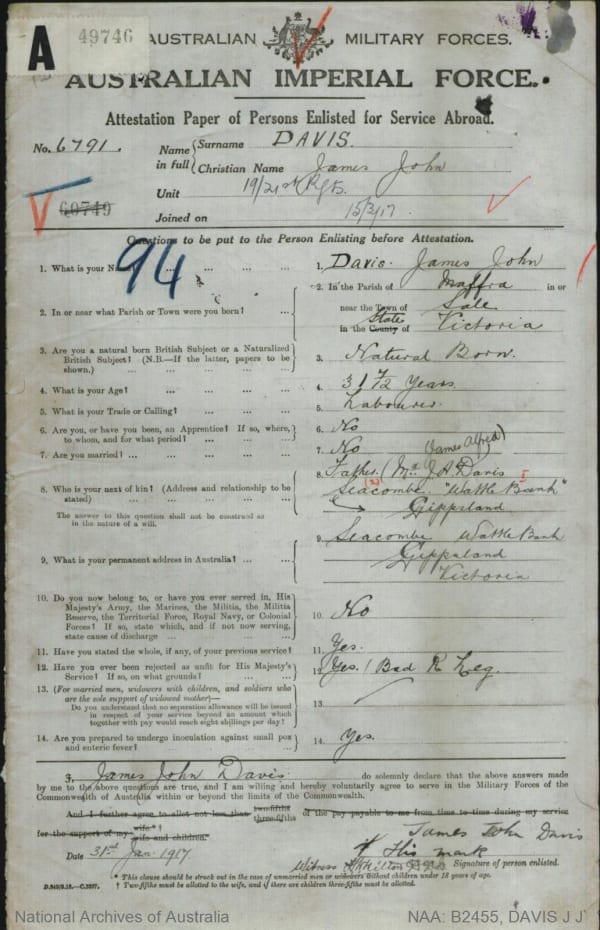 A
49746
AUSTRALIAN MILITARY FORCES.
AUSTRALIAN IMPERIAL FORCE.
Attestation Paper of Persons Enlisted for Service Abroad.
No. 6791.
Name in full
Surname DAVIS.
Christian Name James John
Unit 19/21st Rfts.
Joined on 15/3/17.
60749
94
Questions to be put to the Person Enlisting before Attestation.
1. What is your Name? ... ... ...
1. Davis. James John
2. In or near what Parish or Town were you born? ...
2. In the Parish of Maffra in or
near the Town of Sale
in the County of State Victoria
3. Are you a natural born British Subject or a Naturalized
British Subject? (N.B.—If the latter, papers to be
shown.) ... ... ... ...
3. Natural Born.
4. What is your Age? ... ... ... ...
4. 31 7/12 Years.
5. What is your Trade or Calling? ... ... ...
5. Labourer.
6. Are you, or have you been, an Apprentice? If so, where,
to whom, and for what period? ... ... ...
6. No
7. Are you married? ... ... ... ...
7. No
8. Who is your next of kin? (Address and relationship to be
stated) ... ... ... ...
The answer to this question shall not be construed as
in the nature of a will.
(James Alfred)
8. Father. (Mr J. A. Davis
Seacombe. "Wattle Bank"
Gippsland
9. What is your permanent address in Australia? ... ...
9. Seacombe Wattle Bank
Gippsland
Victoria
10. Do you now belong to, or have you ever served in, His
Majesty's Army, the Marines, the Militia, the Militia
Reserve, the Territorial Force, Royal Navy, or Colonial
Forces? If so, state which, and if not now serving,
state cause of discharge ... ... ...
10. No
11. Have you stated the whole, if any, of your previous service?
11. Yes.
12. Have you ever been rejected as unfit for His Majesty's
Service? If so, on what grounds? ... ...
12. Yes. / Bad R Leg
13. (For married men, widowers with children, and soldiers who
are the sole support of widowed mother)—
Do you understand that no separation allowance will be issued
in respect of your service beyond an amount which
together with pay would reach eight shillings per day?
13.
14. Are you prepared to undergo inoculation against small pox
and enteric fever? ... ... ...
14. Yes.
I, James John Davis do solemnly declare that the above answers made
by me to the above questions are true, and I am willing and hereby voluntarily agree to serve in the Military Forces of the
Commonwealth of Australia within or beyond the limits of the Commonwealth.
And I further agree to allot not less than two-fifths three-fifths of the pay payable to me from time to time during my service
for the support of my wife.* wife and children.
James John Davis
His mark
Date 31st Jan. 1917.
Witness
Signature of person enlisted.
* This clause should be struck out in the case of unmarried men or widowers without children under 18 years of age.
† Two-fifths must be allotted to the wife, and if there are children three-fifths must be allotted.
National Archives of Australia
NAA: B2455, DAVIS J J